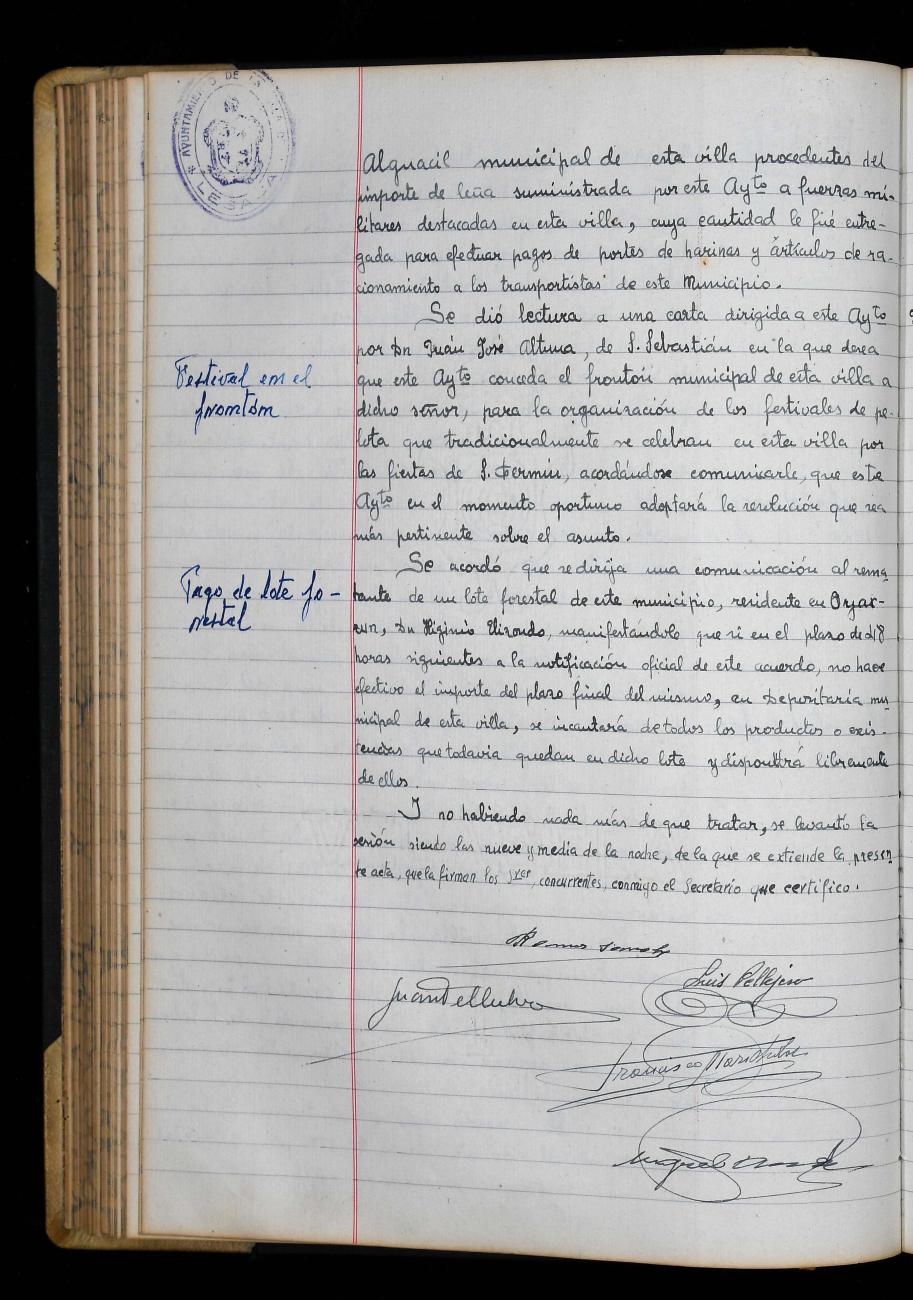 AYUNTAMIENTO DE LA VILLA DE
LESACA
Alguacil municipal de esta villa procedentes del
importe de leña suministrada por este Ayto a fuerzas mi-
litares destacadas en esta villa, cuya cantidad le fué entre-
gada para efectuar pagos de portes de harinas y artículos de ra-
cionamiento a los transportistas de este Municipio.
Se dió lectura a una carta dirigida a este Ayto
por Dn Juán José Altuna, de S. Sebastián en la que desea
Festival en el
frontón
que este Ayto conceda el frontón municipal de esta villa a
dicho señor, para la organización de los festivales de pe-
lota que tradicionalmente se celebran en esta villa por
las fiestas de S. Fermín, acordándose comunicarle, que este
Ayto en el momento oportuno adoptará la resolución que sea
más pertinente sobre el asunto.
Se acordó que se dirija una comunicación al rema-
Pago de lote fo-
restal
tante de un lote forestal de este municipio, residente en Oyar-
zun, Dn Higinio Elizondo, manifestándole que si en el plazo de 48
horas siguientes a la notificación oficial de este acuerdo, no hace
efectivo el importe del plazo final del mismo, en Depositaría mu-
nicipal de esta villa, se incautará de todos los productos o exis-
tencias que todavia quedan en dicho lote y dispondrá libremente
de ellos.
Y no habiendo nada más de que tratar, se levantó la
sesión siendo las nueve y media de la noche, de la que se extiende la presen-
te acta, que la firman los sres, concurrentes, conmigo el Secretario que certifico.
Luis Pellejero
Francisco
Miguel